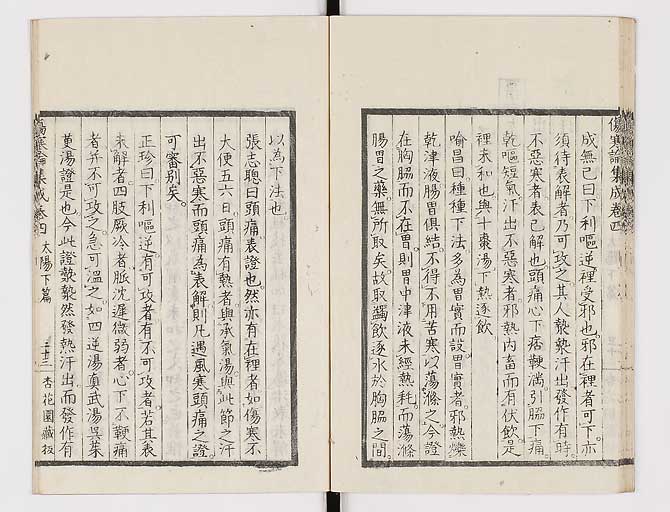 傷寒論集成卷四
成無已曰下利嘔逆裡受邪也邪在裡者可下亦
須待表解者乃可攻之其人漐漐汗出發作有時
不惡寒者表已解也頭痛心下痞鞕滿引脇下痛
乾嘔短氣汗出不惡寒者邪熱內畜而有伏飲是
裡未和也與十棗湯下熱逐飲
喻昌曰種種下法多為胃實而設胃實者邪熱爍
乾津液腸胃俱結不得不用苦寒以蕩滌之今證
在胸脇而不在胃則胃中津液未經熱耗而蕩滌
腸胃之藥無所取矣故取蠲飲逐水於胸脇之間
以為下法也
張志聰曰頭痛表證也然亦有在裡者如傷寒不
大便五六日頭痛有熱者與承氣湯與此節之汗
出不惡寒而頭痛為表解則凡遇風寒頭痛之證
可審別矣
正珍曰下利嘔逆有可攻者有不可攻者若其表
未解者四肢厥冷者脈沈遲微弱者心下不鞕痛
者并不可攻之急可溫之如四逆湯真武湯吳茱
萸湯證是也今此證漐漐然發熱汗出而發作有
傷寒論集成卷四 太陽下篇 二十三 杏花園藏板